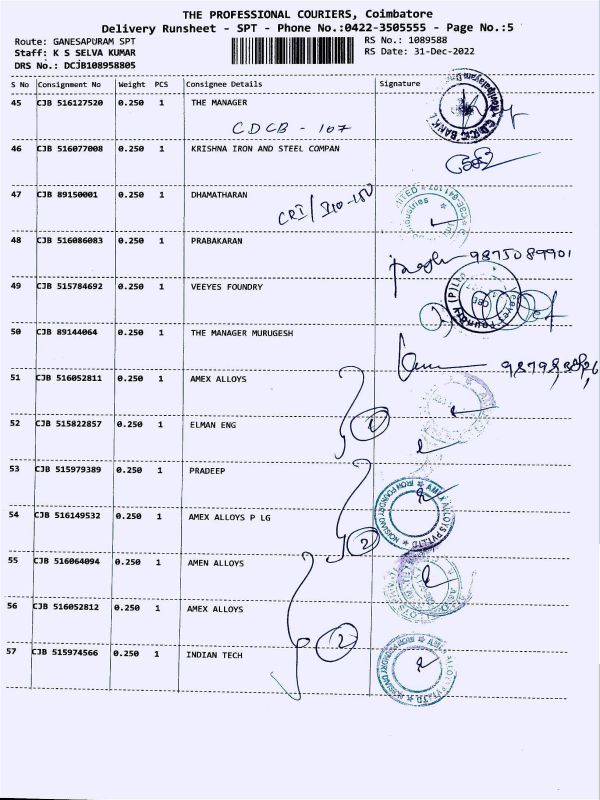 THE PROFESSIONAL COURIERS, Coimbatore
Delivery Runsheet - SPT - Phone No.:0422-3505555 - Page No.:5
Route: GANESAPURAM SPT
Staff: K S SELVA KUMAR
DRS No.: DCJB108958805
RS No.: 1089588
RS Date: 31-Dec-2022
S No Consignment No Weight PCS Consignee Details Signature
45 CJB 516127520 0.250 1 THE MANAGER
CDCB - 107
46 CJB 516077008 0.250 1 KRISHNA IRON AND STEEL COMPAN
47 CJB 89150001 0.250 1 DHAMATHARAN
48 CJB 516086083 0.250 1 PRABAKARAN
9875089901
49 CJB 515784692 0.250 1 VEEYES FOUNDRY
50 CJB 89144064 0.250 1 THE MANAGER MURUGESH
51 CJB 516052811 0.250 1 AMEX ALLOYS
1
52 CJB 515822857 0.250 1 ELMAN ENG
53 CJB 515979389 0.250 1 PRADEEP
54 CJB 516149532 0.250 1 AMEX ALLOYS P LG
2
55 CJB 516064094 0.250 1 AMEN ALLOYS
56 CJB 516052812 0.250 1 AMEX ALLOYS
2
57 CJB 515974566 0.250 1 INDIAN TECH